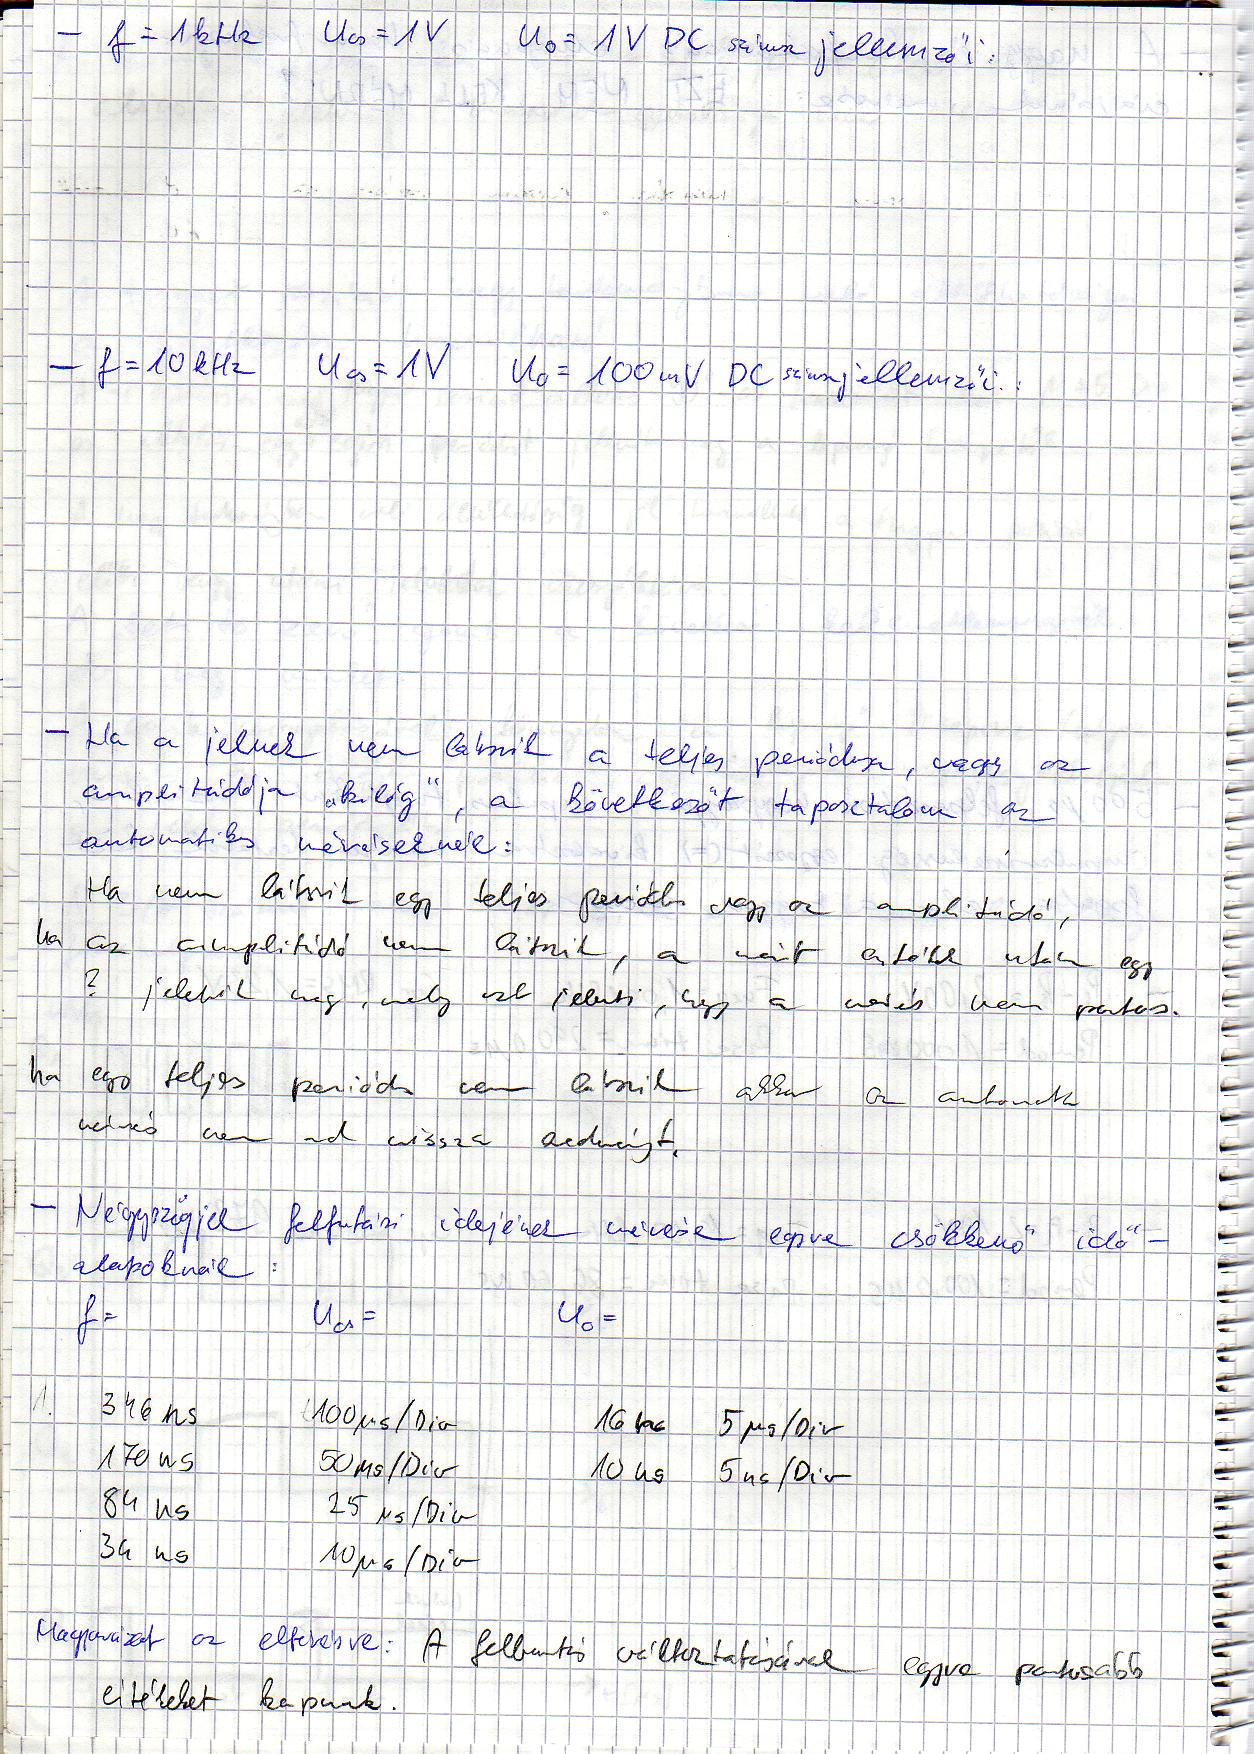 - f = 1 kHz Ucs = 1V U0 = 1V DC szinusz jellemzői:
- f = 10 kHz Ucs = 1V U0 = 100 mV DC szinusz jellemzői:
- Ha a jelnek nem látszik a teljes periódusa, vagy az
amplitúdója „kilóg“, a következőt tapasztalom az
automatikus méréseknél:
Ha nem látszik egy teljes periódus vagy az amplitúdó,
ha az amplitúdó nem látszik, a mért érték után egy
? jelenik meg, mely azt jelenti, hogy a mérés nem pontos.
ha egy teljes periódus nem látszik akkor az automata
mérés nem ad vissza eredményt.
- Négyszögjel felfutási idejének mérése egyre csökkenő idő-
alapoknál:
f = Ucs = U0 =
1. 346 ns 100 µs/Div 16 ns 5 µs/Div
170 ns 50 µs/Div 10 ns 5 ns/Div
84 ns 25 µs/Div
34 ns 10 µs/Div
Magyarázat az eltérésre: A felbontás változtatásával egyre pontosabb
értékeket kapunk.